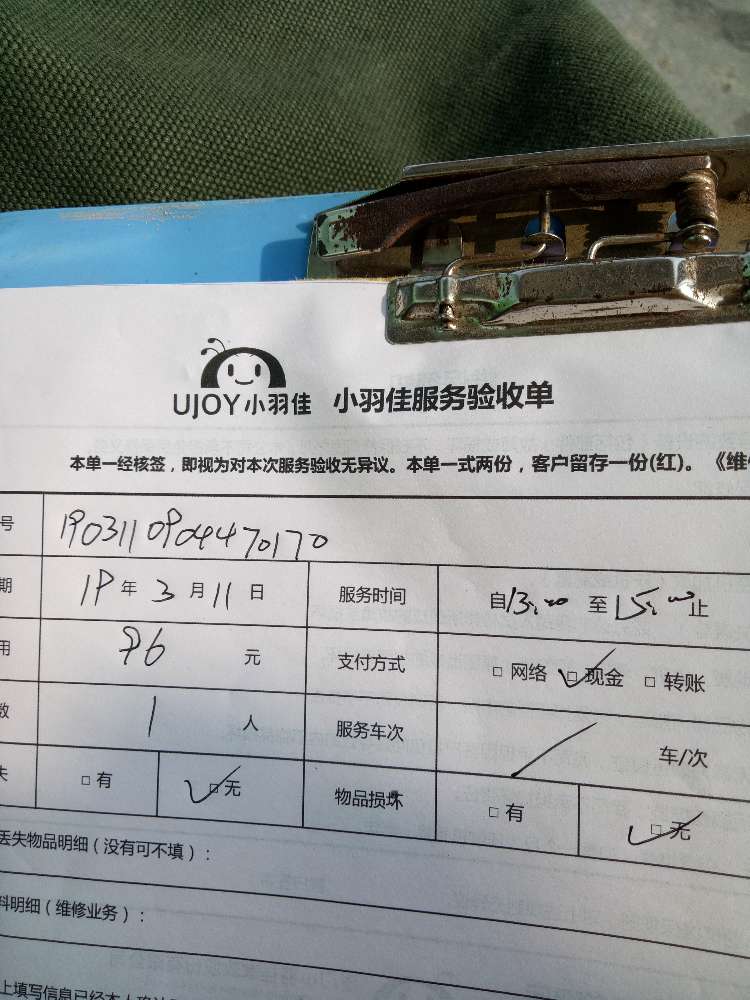 UJOY小羽佳 小羽佳服务验收单
本单一经核签，即视为对本次服务验收无异议。本单一式两份，客户留存一份(红)。《维
号 190311090447 0170
期 19年3月11日 服务时间 自13:00至15:00止
用 96元 支付方式 □网络 ☑现金 □转账
数 1人 服务车次 / 车/次
失 □有 ☑无 物品损坏 □有 ☑无
丢失物品明细（没有可不填）：
料明细（维修业务）：
上填写信息已经本人确认